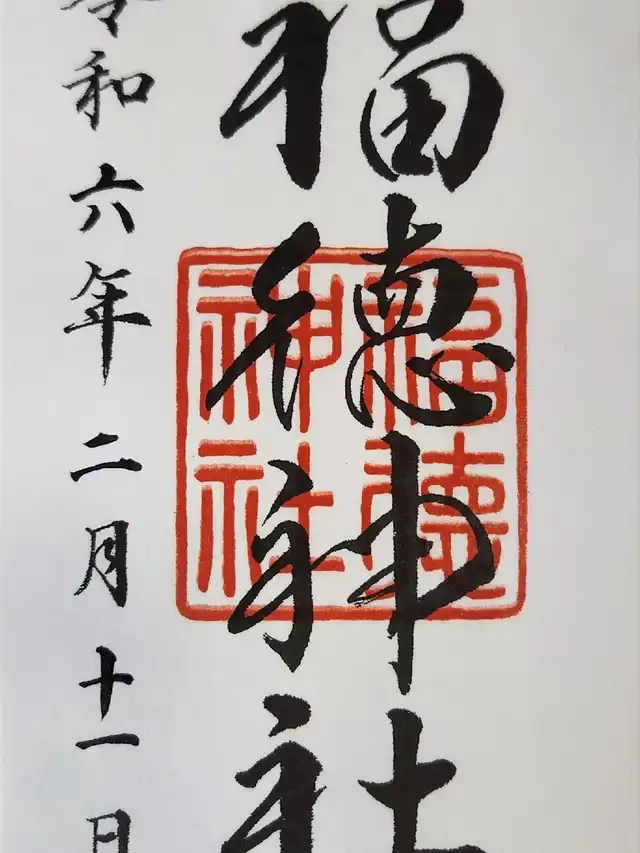 福徳神社
福徳
神社
令和六年二月十一日